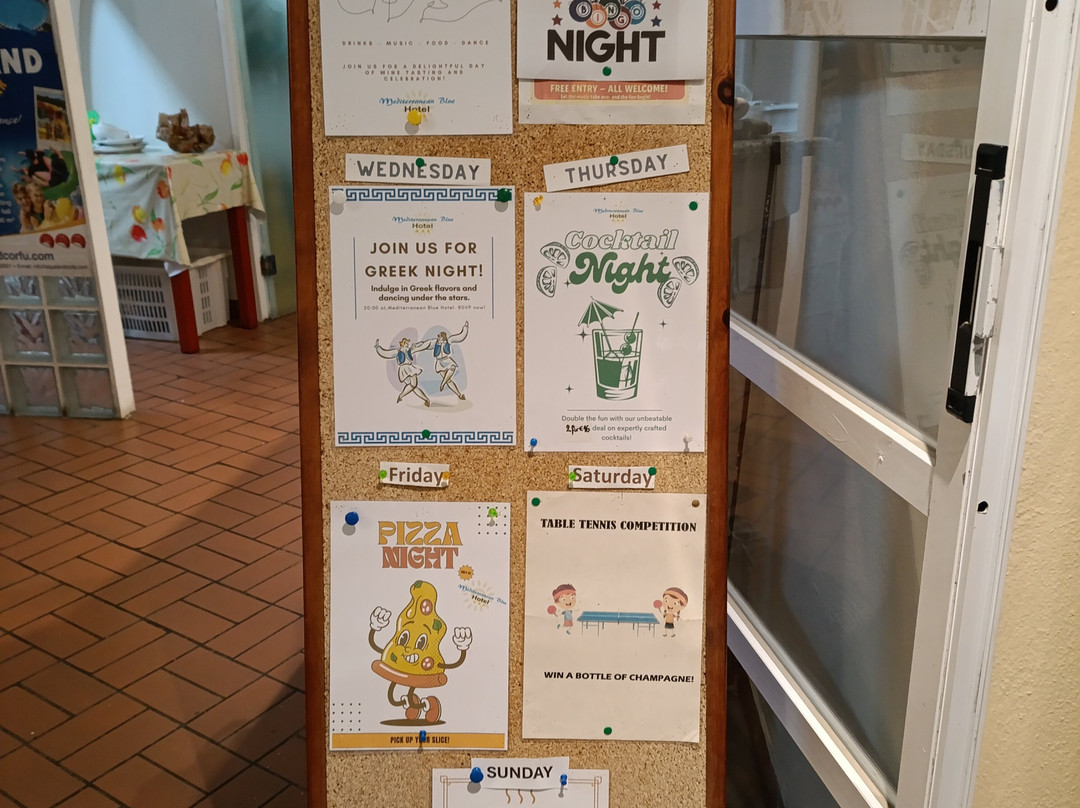 DRINKS . MUSIC . FOOD . DANCE
JOIN US FOR A DELIGHTFUL DAY
OF WINE TASTING AND
CELEBRATION!
Mediterranean Blue
Hotel
BINGO
NIGHT
FREE ENTRY – ALL WELCOME!
WEDNESDAY
Mediterranean Blue
Hotel
JOIN US FOR
GREEK NIGHT!
Indulge in Greek flavors and
dancing under the stars.
20:00 at Mediterranean Blue Hotel. RSVP now!
THURSDAY
Mediterranean Blue
Hotel
Cocktail
Night
Double the fun with our unbeatable
deal on expertly crafted
cocktails!
Friday
PIZZA
NIGHT
Mediterranean Blue
Hotel
PICK UP YOUR SLICE!
Saturday
TABLE TENNIS COMPETITION
WIN A BOTTLE OF CHAMPAGNE!
SUNDAY
ND
dcorfu.com